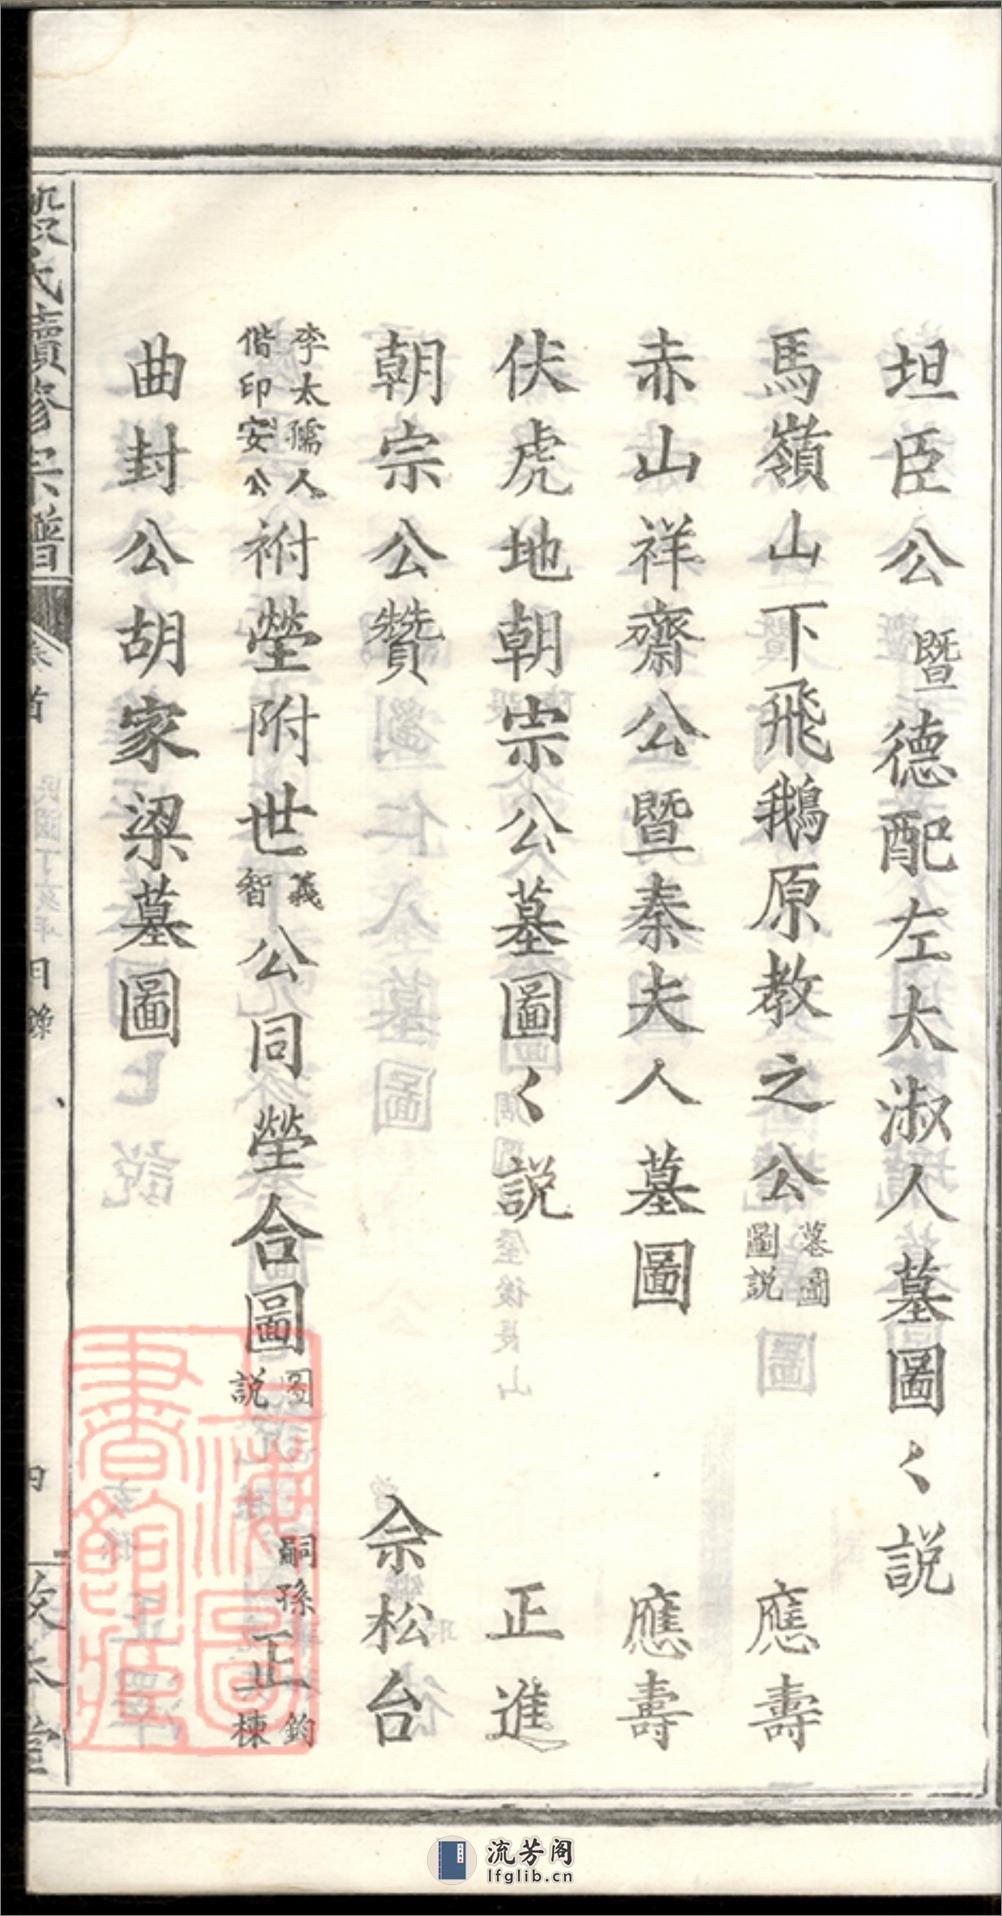 坦臣公暨德配左太淑人墓圖く説
馬嶺山下飛鵝原教之公墓圖圖説 應壽
赤山祥齋公暨秦夫人墓圖 應壽
伏虎地朝宗公墓圖く説 正進
朝宗公贊 佘松台
李太孺人偕印安公祔塋附世義智公同塋合圖圖説 嗣孫正鈞棟
曲封公胡家梁墓圖
氏續修宗譜
首
民國丁亥年
目錄
四
上海圖書館藏
流芳阁
lfglib.cn